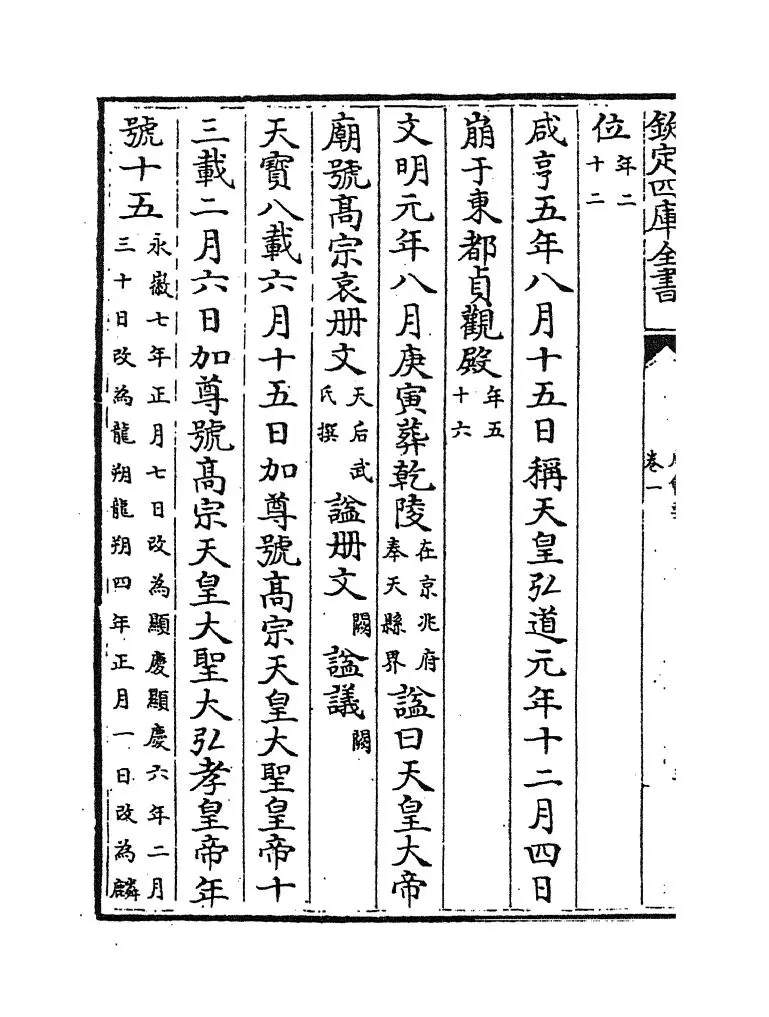 欽定四庫全書
卷一
位年二十二
咸亨五年八月十五日稱天皇弘道元年十二月四日
崩于東都貞觀殿年五十六
文明元年八月庚寅葬乾陵在京兆府奉天縣界諡曰天皇大帝
廟號髙宗哀册文天后武氏撰諡册文闕諡議闕
天寶八載六月十五日加尊號髙宗天皇大聖皇帝十
三載二月六日加尊號髙宗天皇大聖大弘孝皇帝年
號十五永徽七年正月七日改為顯慶顯慶六年二月三十日改為龍朔龍朔四年正月一日改為麟